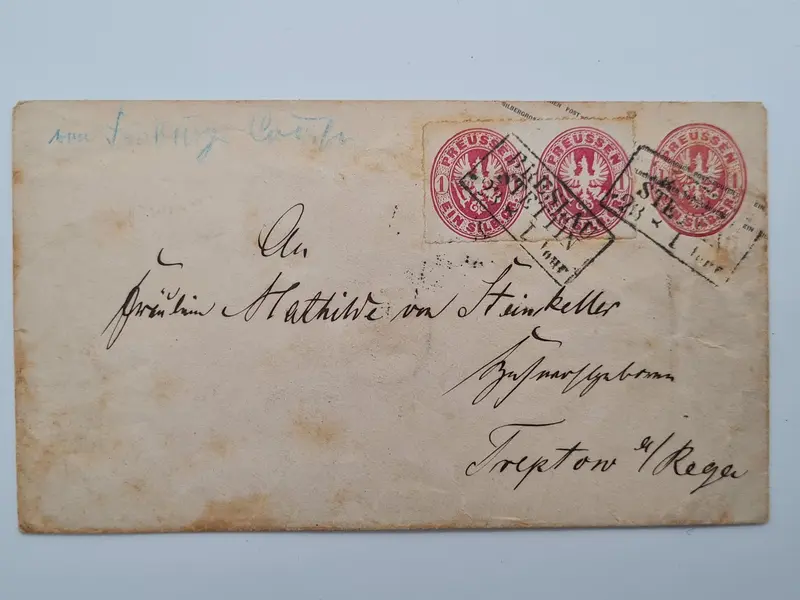 von
PREUSSEN
1 EIN SILB
PREUSSEN
1
PREUSSEN
1
BRESLAU
STETTIN
23 × I
STETTIN
23 × I
An
Fräulein Mathilde von Steinkeller
Hochwohlgeboren
Treptow a/Rega